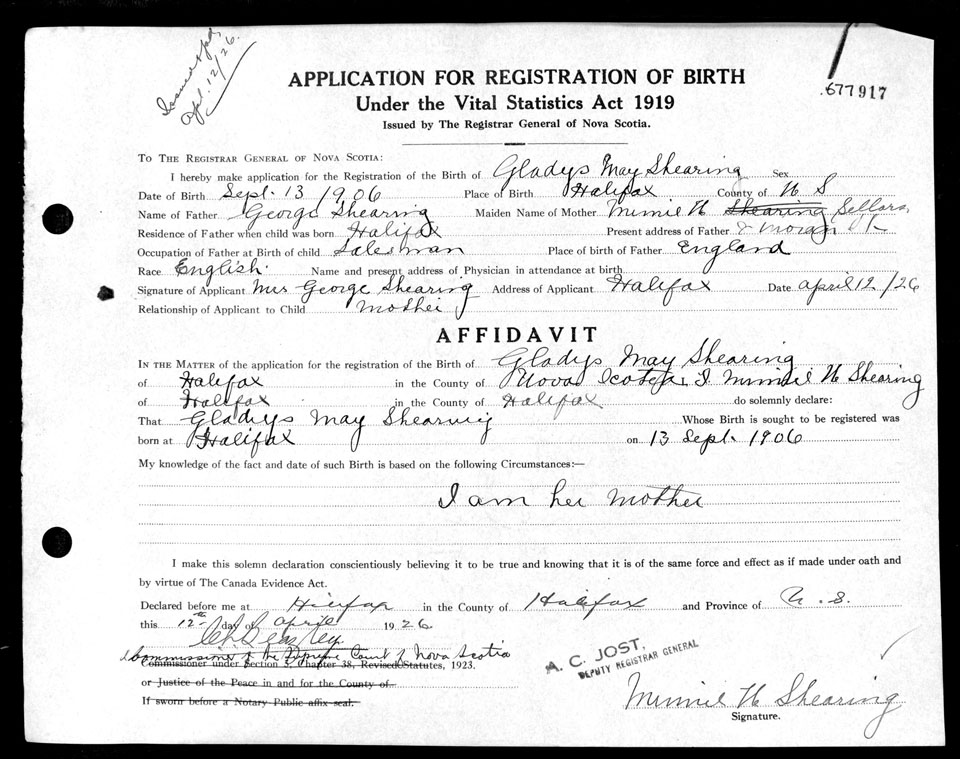 Issued & pd.
Apl. 12/26.
677917
APPLICATION FOR REGISTRATION OF BIRTH
Under the Vital Statistics Act 1919
Issued by The Registrar General of Nova Scotia.
TO THE REGISTRAR GENERAL OF NOVA SCOTIA:
I hereby make application for the Registration of the Birth of Gladys May Shearing Sex
Date of Birth Sept. 13/1906 Place of Birth Halifax County of N S
Name of Father George Shearing Maiden Name of Mother Minnie H Shearing Sellars
Residence of Father when child was born Halifax Present address of Father 2 Moran St
Occupation of Father at Birth of child Salesman Place of birth of Father England
Race English. Name and present address of Physician in attendance at birth
Signature of Applicant Mrs George Shearing Address of Applicant Halifax Date April 12/26
Relationship of Applicant to Child Mother
AFFIDAVIT
IN THE MATTER of the application for the registration of the Birth of Gladys May Shearing
of Halifax in the County of Nova Scotia I Minnie H Shearing
of Halifax in the County of Halifax do solemnly declare:
That Gladys May Shearing Whose Birth is sought to be registered was
born at Halifax on 13 Sept. 1906
My knowledge of the fact and date of such Birth is based on the following Circumstances:—
I am her mother
I make this solemn declaration conscientiously believing it to be true and knowing that it is of the same force and effect as if made under oath and
by virtue of The Canada Evidence Act.
Declared before me at Halifax in the County of Halifax and Province of N. S.
this 12th day of April 1926.
A Commissioner of the Supreme Court of Nova Scotia
Commissioner under Section 3, Chapter 38, Revised Statutes, 1923.
or Justice of the Peace in and for the County of
If sworn before a Notary Public affix seal.
A. C. JOST,
DEPUTY REGISTRAR GENERAL
Minnie H Shearing
Signature.